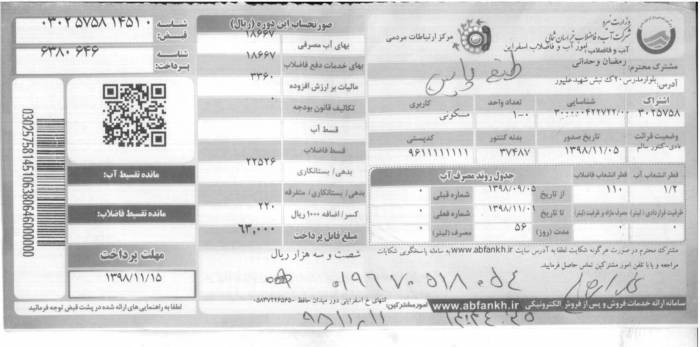 وزارت نیرو
شرکت آب و فاضلاب خراسان شمالی
آب و فاضلاب: امور آب و فاضلاب اسفراین
مرکز ارتباطات مردمی
مشترک محترم:
رمضان وحدانی
آدرس: بلوار مدرس ۲۰ک نبش شهید علیپور
اشتراک شناسایی تعداد واحد کاربری
۳۰۲۵۷۵۸ ۱-۰ مسکونی
وضعیت قرائت تاریخ صدور بدنه کنتور کدپستی
عادی-کنتور سالم ۱۳۹۸/۱۱/۰۵ ۳۷۴۸۷ ۹۶۱۱۱۱۱۱۱۱
قطر انشعاب آب قطر انشعاب فاضلاب
۱/۲ ۱۱۰
ظرفیت قراردادی (لیتر) مصرف مازاد بر ظرفیت (لیتر)
۰ ۰
جدول روند مصرف آب
از تاریخ ۱۳۹۸/۰۹/۰۵ شماره قبلی ۰
تا تاریخ ۱۳۹۸/۱۱/۰۱ شماره فعلی ۰
مدت (روز) ۵۶ مصرف (لیتر) ۰
مشترک محترم در صورت هرگونه شکایت لطفا به آدرس سایت www.abfankh.ir به سامانه پاسخگویی شکایات
مراجعه و یا با تلفن امور مشترکین تماس حاصل فرمایید.
سامانه ارائه خدمات فروش و پس از فروش الکترونیکی www.abfankh.ir
امور مشترکین: انتهای خ اسفراینی دور میدان حافظ ۰۵۸۳۷۲۲۶۵۶۵۰
صورتحساب این دوره (ریال)
بهای آب مصرفی ۱۸۶۶۷
بهای خدمات دفع فاضلاب ۱۸۶۶۷
مالیات بر ارزش افزوده ۳۳۶۰
تکالیف قانون بودجه ۰
قسط آب
قسط فاضلاب
بدهی/ بستانکاری ۲۲۵۲۶
بدهی/ بستانکاری/ متفرقه
کسر/ اضافه ۱۰۰۰ ریال ۲۲۰
مبلغ قابل پرداخت ۶۳,۰۰۰
شصت و سه هزار ریال
شناسه قبض: ۰۳۰۲۵۷۵۸۱۴۵۱۰
شناسه پرداخت: ۶۳۸۰۶۴۶
مانده تقسیط آب:
مانده تقسیط فاضلاب:
مهلت پرداخت
۱۳۹۸/۱۱/۱۵
لطفا به راهنمایی های ارائه شده در پشت قبض توجه فرمائید